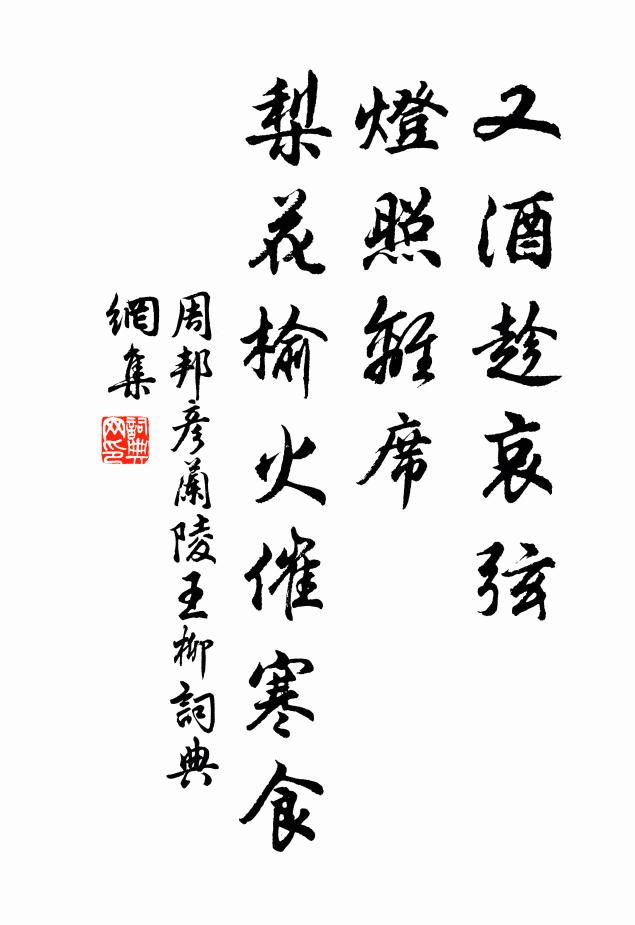 又酒趁哀弦
燈照離席
梨花榆火催寒食
周邦彥蘭陵王柳詞典
網集
詞典
网印